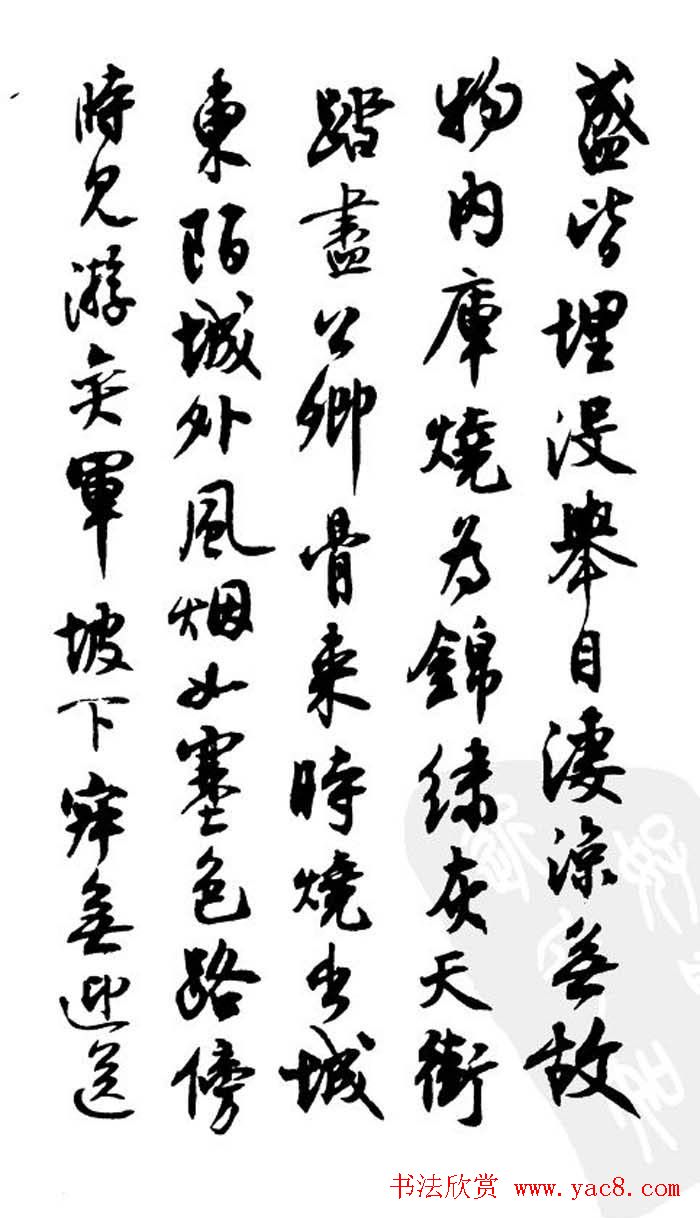 盛皆埋没舉目淒涼無故
物内庫燒為錦繡灰天街
踏盡公卿骨来時燒出城
東陌城外風烟如塞色路傍
時見游奕軍坡下寂無迎送
书法欣赏 www.yac8.com